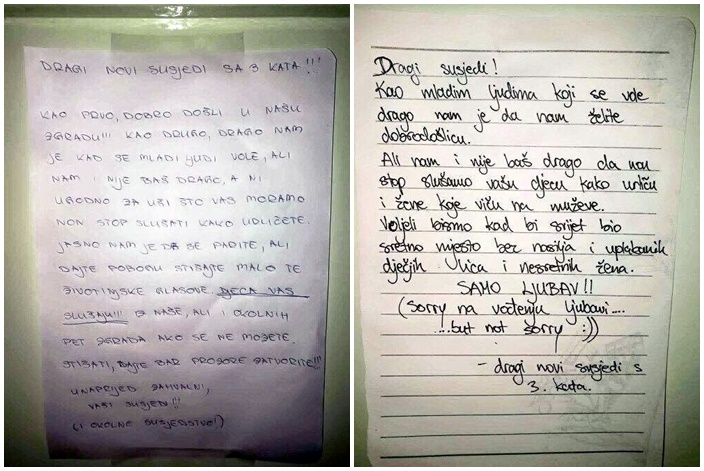 DRAGI NOVI SUSJEDI SA 3 KATA!!!
KAO PRVO, DOBRO DOŠLI U NAŠU
ZGRADU!!! KAO DRUGO, DRAGO NAM
JE KAD SE MLADI LJUDI VOLE, ALI
NAM I NIJE BAŠ DRAGO, A NI
UGODNO ZA UŠI ŠTO VAS MORAMO
NON STOP SLUŠATI KAKO UDLIŽETE.
JASNO NAM JE DA SE PARITE, ALI
DAJTE POBOGU STIŠAJTE MALO TE
ŽIVOTINJSKE GLASOVE. DJECA VAS
SLUŠAJU!!! IZ NAŠE, ALI I OKOLNIH
PET ZGRADA. AKO SE NE MOŽETE
STIŠATI, DAJTE BAR PROZORE ZATVORITE!!!
UNAPRIJED ZAHVALNI,
VAŠI SUSJEDI!!!
(I OKOLNE SUSJEDSTVO!)
Dragi susjedi!
Kao mladim ljudima koji se vole
drago nam je da nam želite
dobrodošlicu.
Ali nam i nije baš drago da non
stop slušamo vašu djecu kako urliču
i žene koje viču na muževe.
Voljeli bismo kad bi svijet bio
sretno mjesto bez nasilja i uplakanih
dječjih lica i nesretnih žena.
SAMO LJUBAV!!
(sorry na vođenju ljubavi....
....but not sorry :))
- dragi novi susjedi s
3. kata.